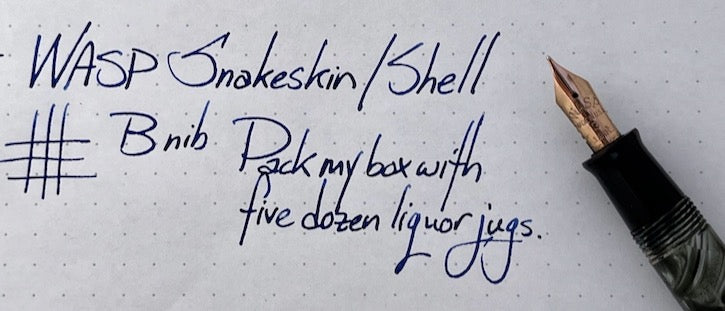 WASP Snakeskin/Shell
B nib Pack my box with
five dozen liquor jugs.